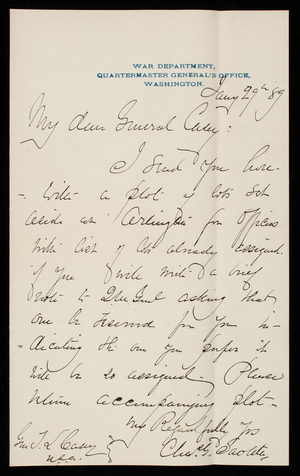 WAR DEPARTMENT,
QUARTERMASTER GENERAL'S OFFICE,
WASHINGTON.
Jany 29th 89
My dear General Casey:
I send you here-
-with a plot of lots set
aside at Arlington for officers
with list of lots already assigned.
If you write a brief
note to asking that
one be reserved for you in-
-dicating the one you prefer it
will be so assigned. Please
return accompanying plot-
Very Respectfully Yrs
Gen. T. L. Casey
U.S.A.